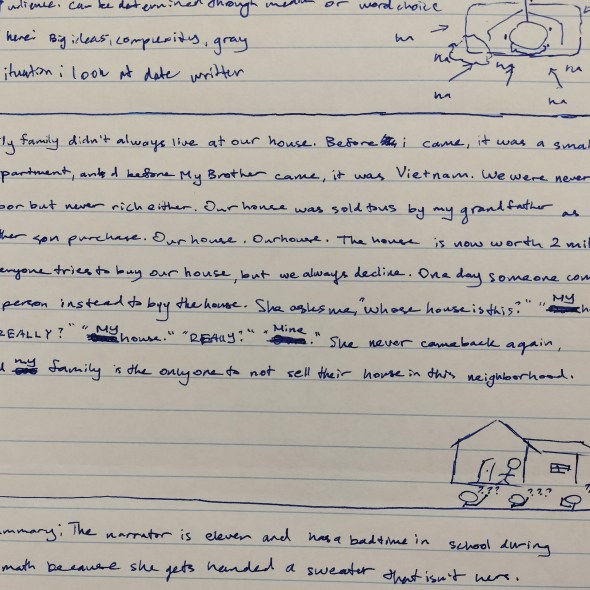 udience. can be determined though media or word choice
here: Big ideas, complexity, gray
ituation: look at date written
na
na
na
na
na
na
ly family didn't always live at our house. Before i came, it was a smal
partment, and before My Brother came, it was Vietnam. We were never
oor but never rich either. Our house was sold to us by my grandfather as
ther son purchase. Our house. Our house. The house is now worth 2 mil
eryone tries to buy our house, but we always decline. One day someone com
person instead to buy the house. She askes me, "whose house is this?" "My h
REALLY?" "My house." "REALLY?" "Mine." She never came back again,
d my family is the only one to not sell their horse in this neighborhood.
??? ??? ?
ummary: The narrator is eleven and has a bad time in school during
math because she gets handed a sweater that isn't hers.